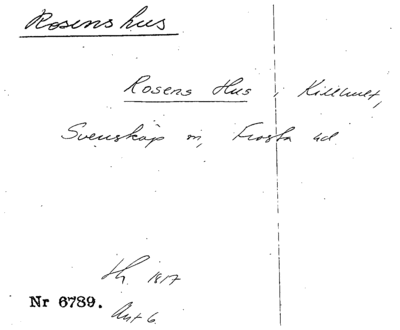 Rosens hus
Rosens Hus i Killhult,
Svensköp sn, Frosta hd
Hfl 1817
Nr 6789.
Ant 6.